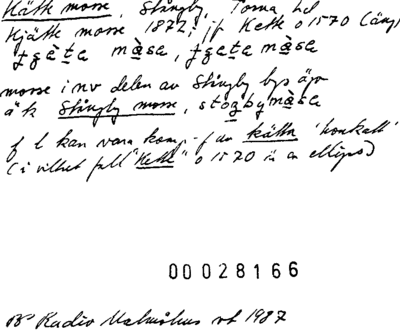 Kätte mosse, Stångby, Torna hd
Kjätte mosse 1872; jf Kette o 1570 (äng)
mosse i nv delen av Stångby bys ägor
ä k Stångby mosse, stọgbymàsa
f l kan vara komp-f av kätta 'honkatt'
(i vilket fall "Kette" o 1570 är en ellips)
00028166
Radio Malmöhus vt 1987